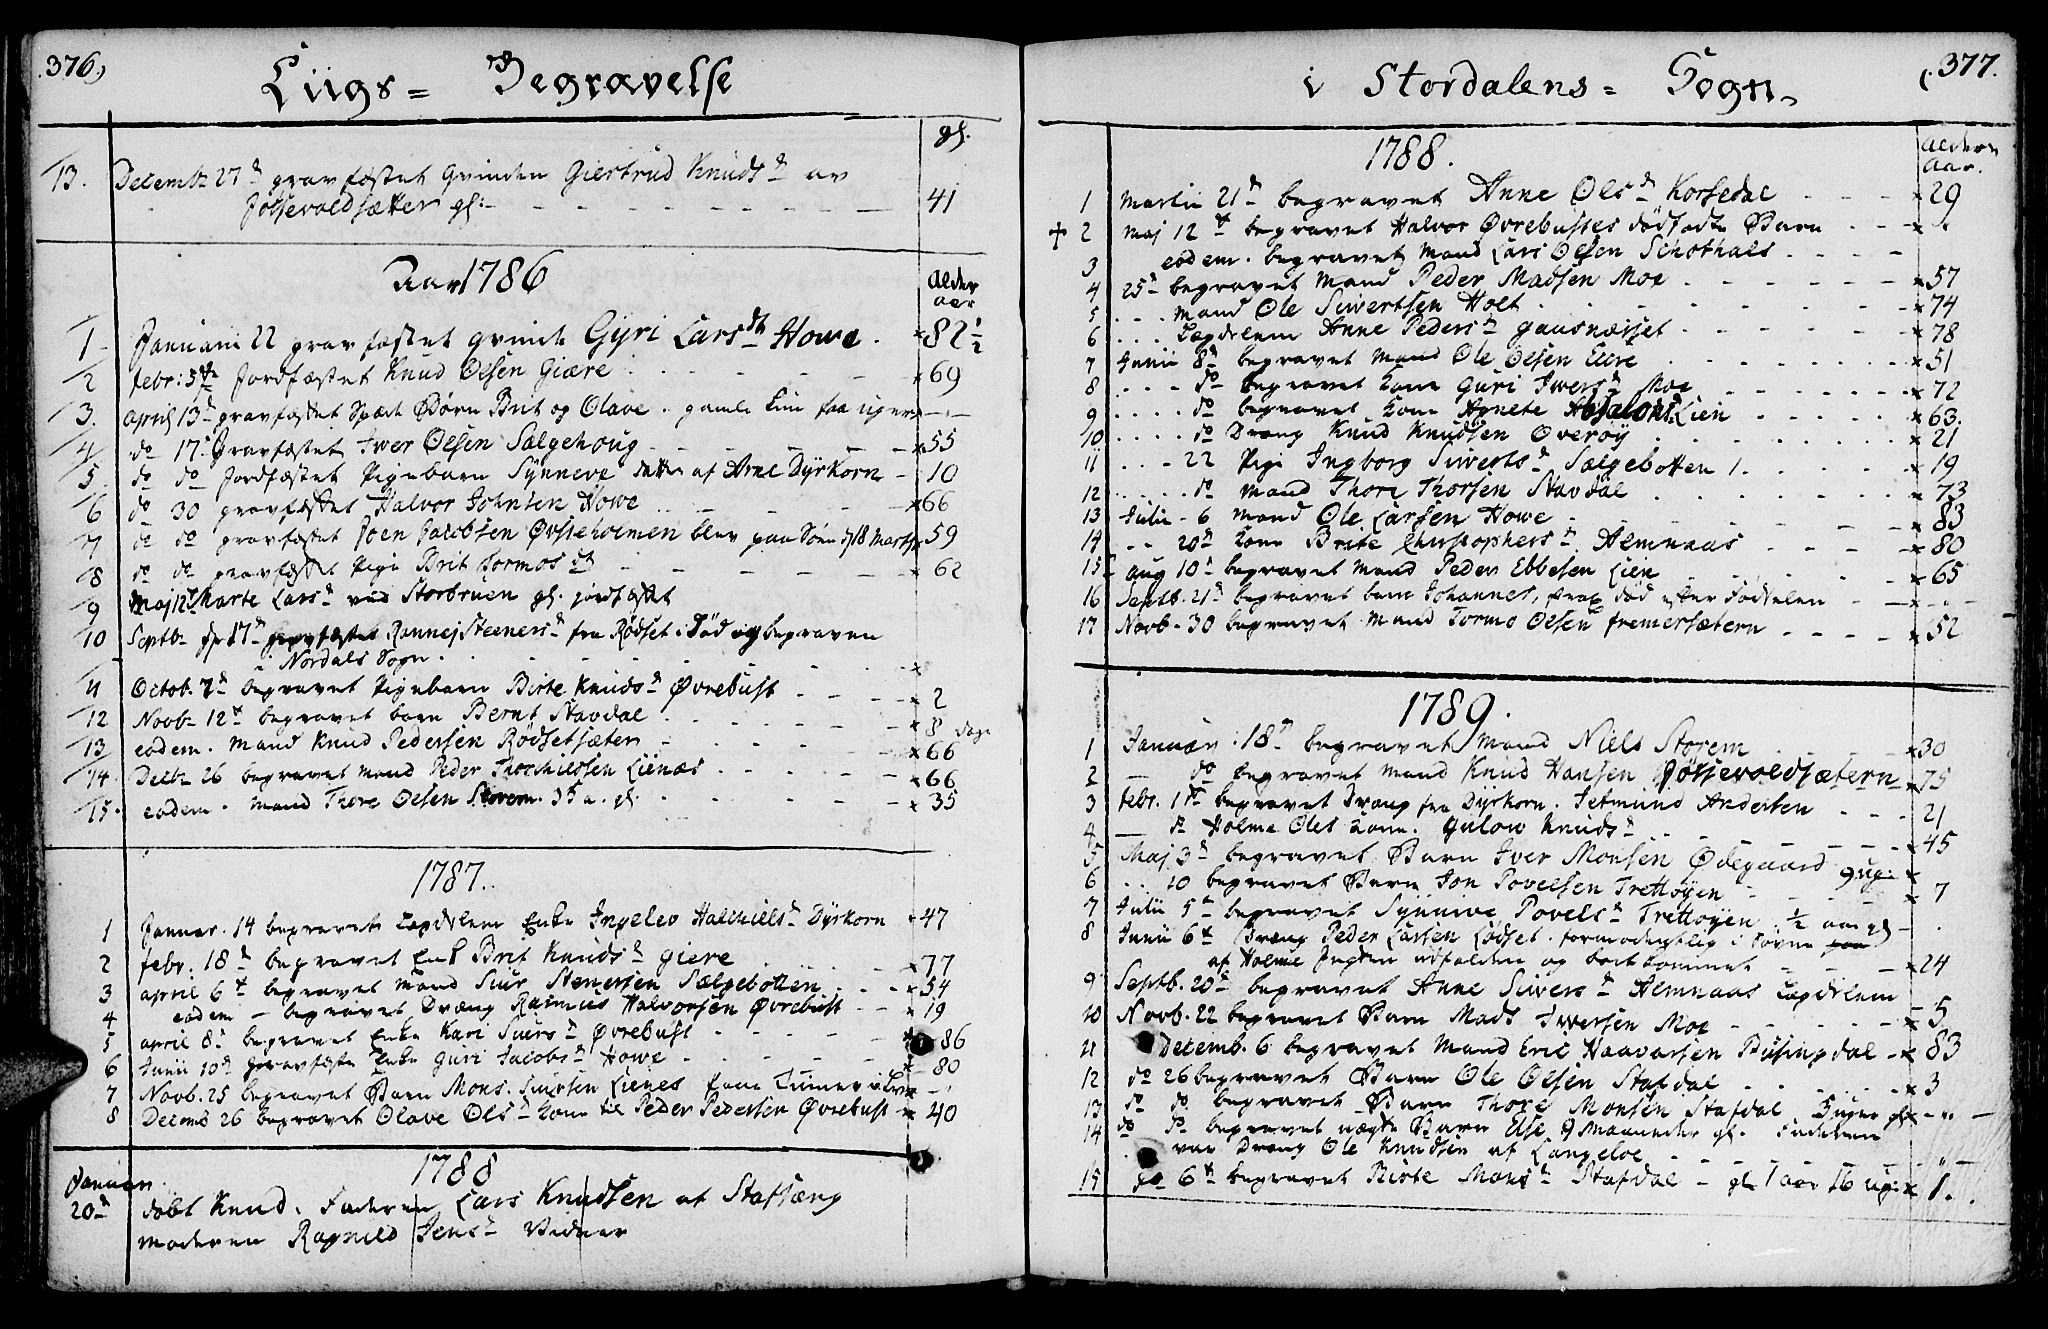 376.)
Liigs= Begravelse
gl.
13. Decembr 27de gravfæstet Qvinden Giertrud Knudsdr av
Jøtsevoldsætter gl:- 41
Aar 1786
Alder
aar
1 Januarii 22 gravfæstet qvinde Gyri Larsdtr Howe. × 82 1/2
2 febr: 5te Jordfæstet Knud Olsen Giære × 69
3. april 13de gravfæstet Spæde Børn Brit og Olave. gamle faa uger
4 do 17. Gravfæstet Iwer Olsen Sælgehoug × 55
5 do do Jordfæstet Pigebarn Synneve af Arne Dyrkorn - 10
6 do 30 gravfæstet Halvor Johnsen Howe × 66
7 do do gravfæstet Joen Jacobsen Øvsteholmen blev paa Søen d 18 Marts × 59
8 do do gravfæstet Pige Brit Tormosdtr × 62
9 Maj 12te Marte Larsdr ved Storbruen gl. jordfæstet
10 Septbr 17de gravfæstet Rannej Steenersdr fra Rødset i Død og begraven
i Nordals Sogn. ×
11 Octob. 7de begravet Pigebarn Birte Knudsdr Øvrebust × 2
12 Novbr 12te begravet barn Bernt Stavdal × 8 dage
13 eodem. Mand Knud Pedersen Rødsetsæter × 66
14. Decbr 26 begravet Mand Peder Thorchildsen Lienæs × 66
15. eodem. Mand Thore Olsen Storem. 35 a. gl. × 35
1787.
1 Januar. 14 begravet Lægdslem Enke Ingelev Halchielsdr Dyrkorn × 47
2 febr: 18de begravet Enke Brit Knudsdr Giere × 77
3 april 6te begravet Mand Siur Stenersen Sælgebotten × 54
4 eodem - begravet Dræng Rasmus Halvorsen Øvrebust × 19
5 april 8de begravet Enke Kari Siursdr Øvrebust × 86
6 Junii 10de Gravfæstet Enke Guri Jacobsdr Howe × 80
7 Novb. 25 begravet Barn Mons Siursen Lienes
8 Decemb 26 begravet Olave Olsdr Kone til Peder Pedersen Øvrebust × 40
1788
Januar.
20de døbt Knud. Faderen Lars Knudsen af Stafsæng
Moderen Ragnild Jensdr
(.377.
i Stordalens= Sogn.
1788.
Alderen
Aar.
1 Martii 21de begravet Anne Olsdr Korsedal × 29
✝ 2 Maj 12te begravet Halvor Øvrebustes dødfødte Barn ×
3 eodem. begravet Mand Lars Olsen Schothals
4 25de begravet Mand Peder Madsen Moe × 57
5 . . . Mand Ole Siwertsen Holt × 74
6 . . . Lægdslem Anne Pedersdr Gausnæsset × 78
7 Junii 8de begravet Mand Ole Olsen Liere × 51
8 . . . do begravet Kone Guri Iwersdr Moe × 72
9 . . . . do begravet Kone Agnete Absalonsdr Lien × 63.
10 . . . . do Dræng Knud Knudsen Overøy × 21
11 . . . 22 Pige Ingborg Siwertsdr Sælgebotten × 19
12 . . . . . do Mand Thore Thorsen Stavdal × 73
13 Julii - 6 Mand Ole Larsen Howe × 83
14 . . 20de Kone Brite Christophersdr Almnaas × 80
15 aug 10de begravet Mand Peder Ebbesen Lien × 65
16 Septb. 21de begravet barn Johannes, strax død efter Fødselen
17 Novb. 30 begravet Mand Tormo Olsen fremersætern × 52
1789.
1 Januar: 18de begravet Mand Niels Storem × 30
2 - do begravet Mand Knud Hansen Jøtsevoldsætern × 75
3 febr. 1te begravet Dræng fra Dyrkorn. Setmund Andersen 21
4 - do Holme Oles Kone. Gulow Knudsdr × 45
5 Maj 3de begravet Barn Iver Monsen Ødegaard 9 ug: ×
6 . . 10 begravet Barn Jon Povelsen Trettøyen × 7
7 Julii 5te begravet Synnive Povelsdr Trettøyen. 1/2 aar gl
8 Junii 6te Dræng Peder Larsen Lødset. formodentlig i Søen
af Holme udfalden og bort kommet × 24
9 Septb. 20de begravet Anne Siwersdr Almnaas Lægdslem
10 Novb. 22 begravet Barn Mads Iwersen Moe × 5
11 Decemb. 6 begravet Mand Eric Haavarsen Busingdal × 83
12 do 26 begravet Barn Ole Olsen Stafdal × 3
13 do do begravet Barn Thore Monsen Stafdal 5 uger gl ×
14 do do begravet uægte Barn Else 9 Maaneder gl. Faderen
var Dræng Ole Knudsen af Langeloe
15 do 6te begravet Birte Monsdr Stafdal - gl 1 aar 16 ug: × 1.